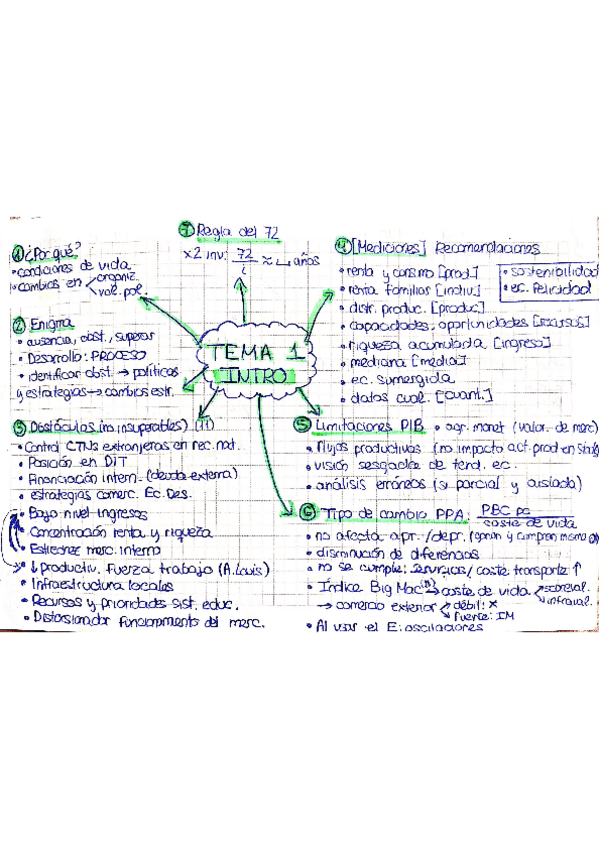 TEMA 1
INTRO
① ¿Por qué?
• condiciones de vida
• cambios en organiz.
val. pol.
② Enigma
• ausencia, obst., superar
• Desarrollo: PROCESO
• identificar obst. → políticas
y estrategias → cambios estr.
③ Obstáculos (no insuperables) (11)
• Control CTNs extranjeras en rec. nat.
• Posición en DIT
• Financiación intern. (deuda externa)
• estrategias comerc. Ec. Des.
• Bajo nivel ingresos
• Concentración renta y riqueza
• Estrechez merc. interno
• ↓ productiv. fuerza trabajo (A. Lewis)
• Infraestructura locales
• Recursos y prioridades sist. educ.
• Distorsionador funcionamiento del merc.
④ [Mediciones] Recomendaciones
• renta y consumo [prod.]
• renta familias [indiv.]
• distr. produc. [produc.]
• capacidades, oportunidades [recursos]
• riqueza acumulada [ingreso]
• mediana [media]
• ec. sumergida
• datos cual. [cuant.]
• sostenibilidad
• ec. felicidad
⑤ Limitaciones PIB • agr. monet (valor. de merc)
• flujos productivos (no impacto act. prod en
• visión sesgada de tend. ec.
• análisis erróneos (si parcial y aislada)
⑥ Tipo de cambio PPA: PBC pc
coste de vida
• no afecta apr./depr. (ganan y compran misma
• disminución de diferencias
• no se cumple: servicios/ coste transporte ↑
• Índice Big Mac → coste de vida sobreval.
infraval.
→ comercio exterior débil: X
fuerte: IM
• Al usar el E: oscilaciones
⑦ Regla del 72
x2 inv: 72
i
≈ años